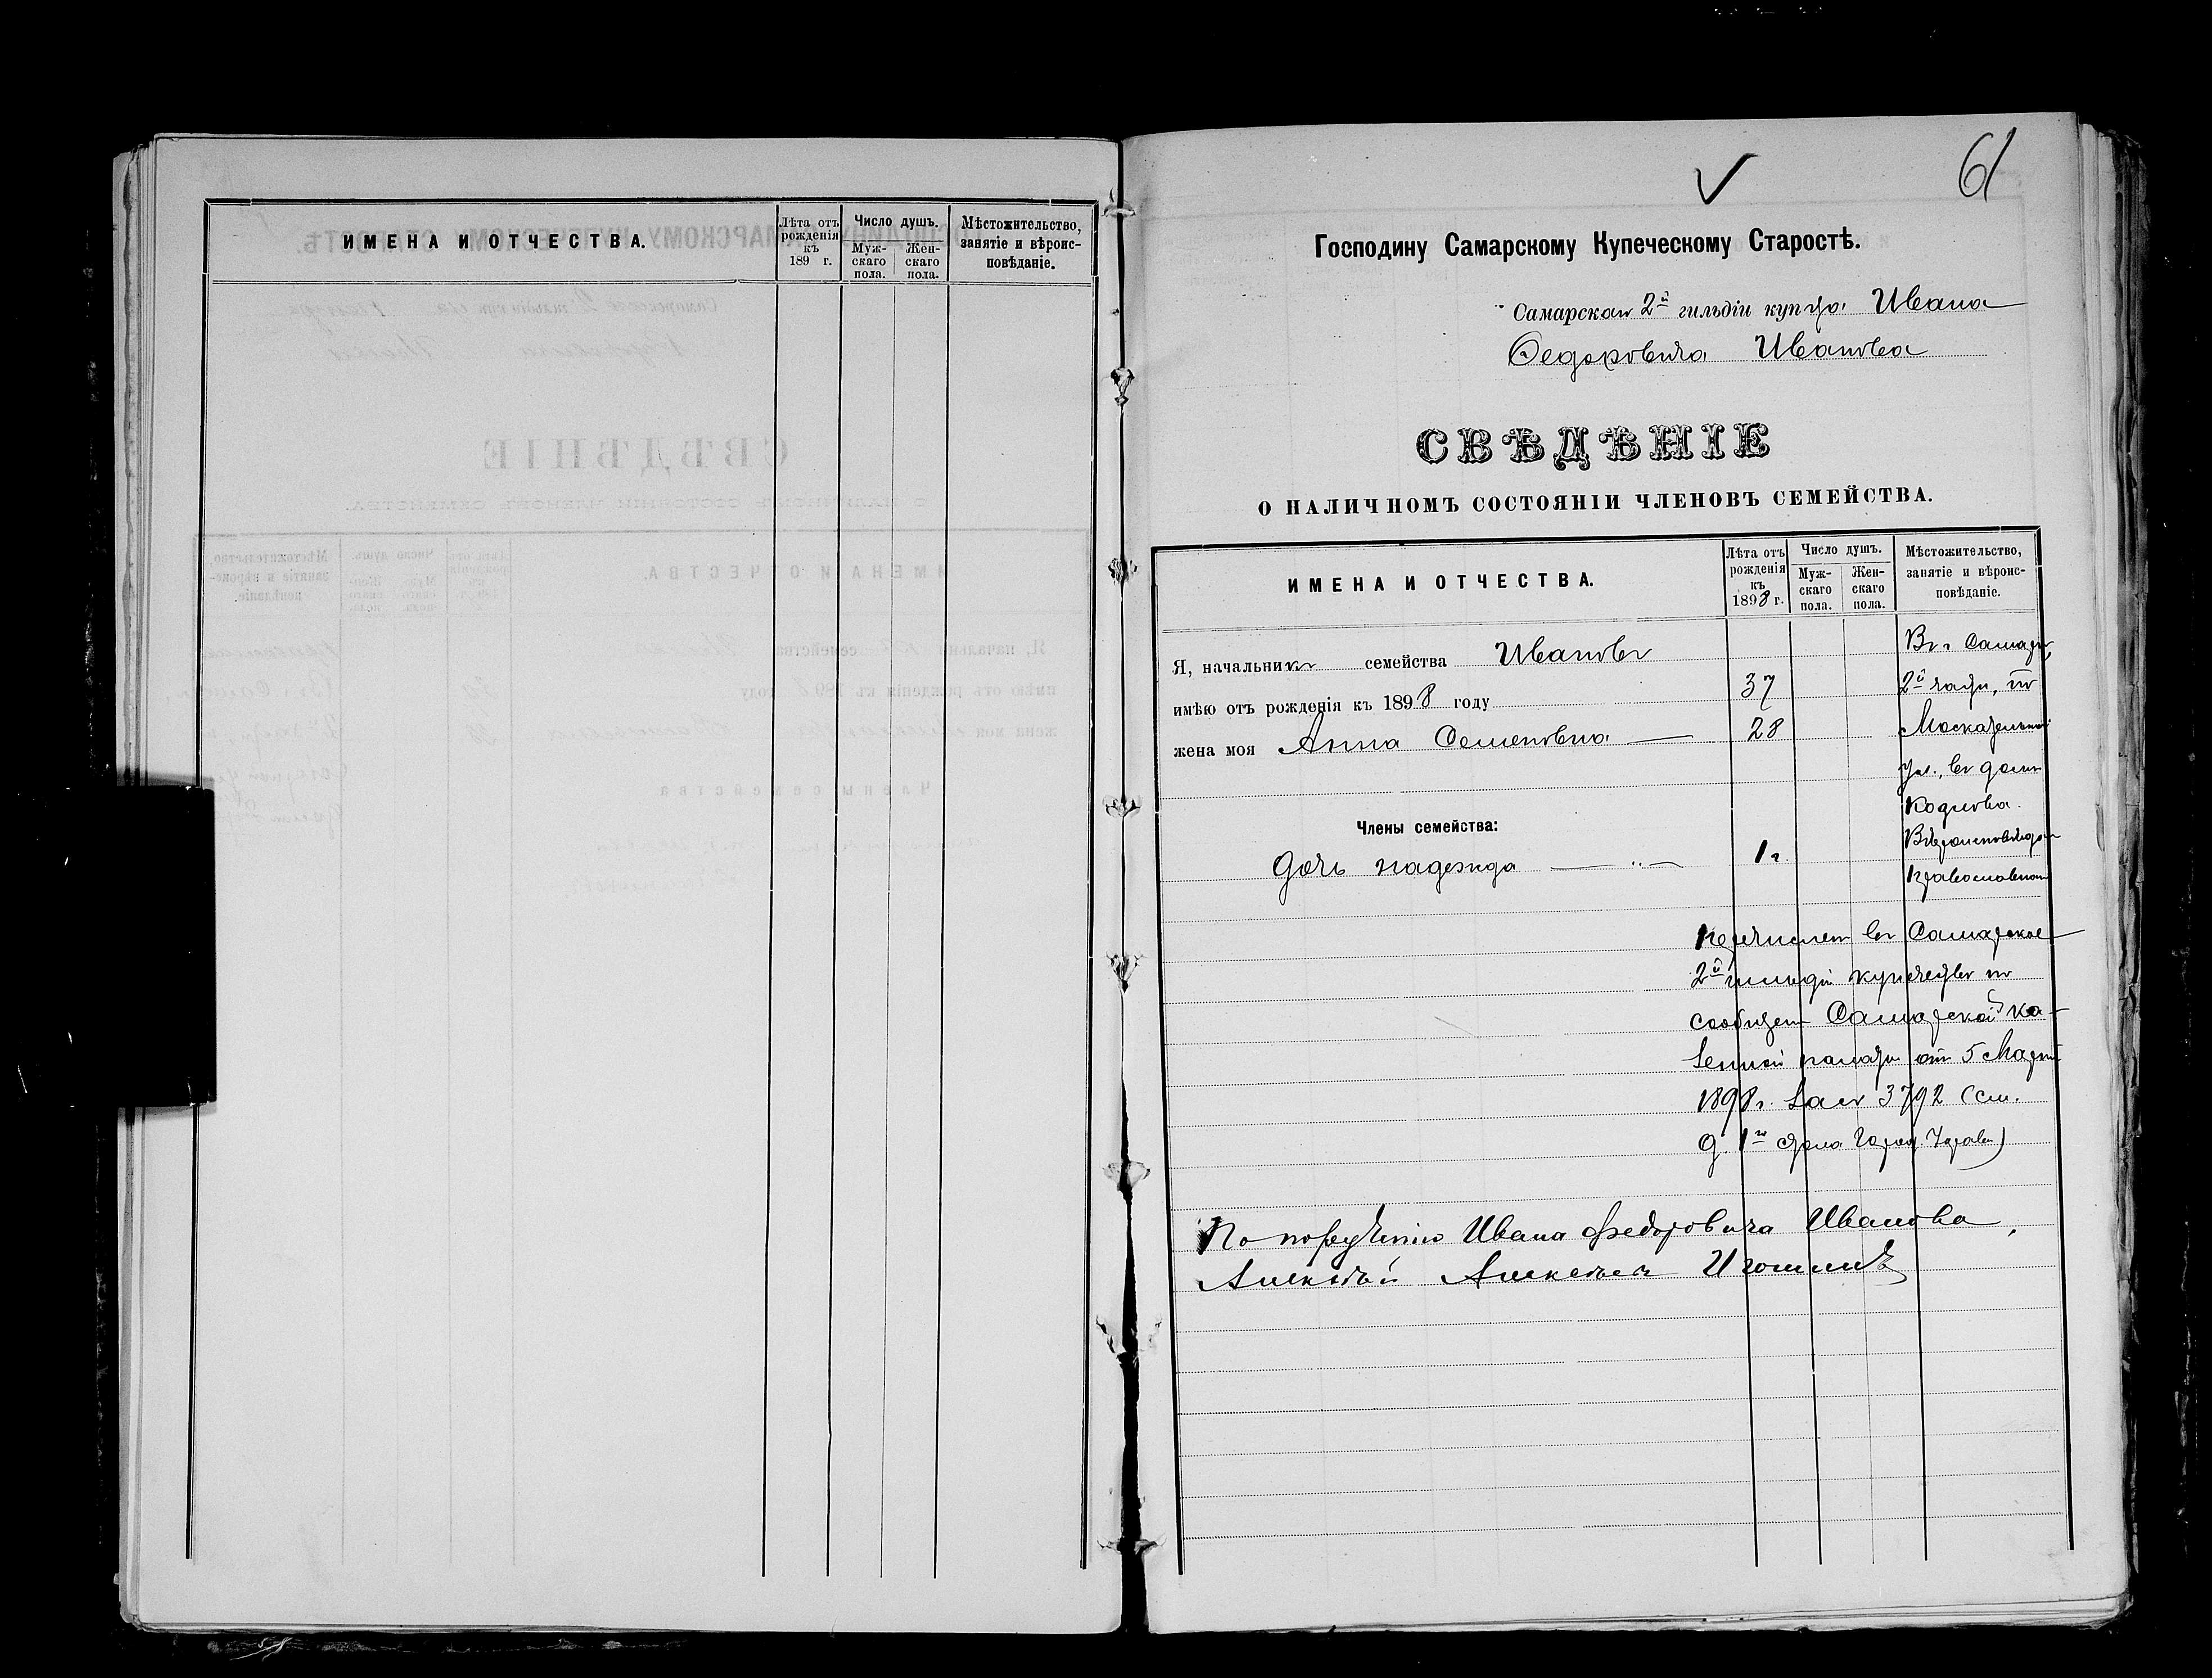 ИМЕНА И ОТЧЕСТВА.
Лѣта отъ рожденія къ 189 г.
Число душъ.
Муж-скаго пола.
Жен-скаго пола.
Мѣстожительство, занятіе и вѣроис-повѣданіе.
61
Господину Самарскому Купеческому Старостѣ.
Самарскаго 2й гильдіи купца Ивана
Федоровича Иванова
СВѢДѢНІЕ
О НАЛИЧНОМЪ СОСТОЯНІИ ЧЛЕНОВЪ СЕМЕЙСТВА.
ИМЕНА И ОТЧЕСТВА.
Лѣта отъ рожденія къ 1898 г.
Число душъ.
Муж-скаго пола.
Жен-скаго пола.
Мѣстожительство, занятіе и вѣроис-повѣданіе.
Я, начальникъ семейства Ивановъ
Въ г. Самарѣ,
имѣю отъ рожденія къ 1898 году 37
2й части, по
жена моя Анна Семеновна 28
Москательной
ул., въ домѣ
Члены семейства:
дочь Надежда 1 г.
Православнаго
Перечисленъ въ Самарское
2й гильдіи купечество по
сообщен. Самарской Ка-
зенной палаты отъ 5 Марта
1898 г. за № 3792 (см.
д. 1го стола Город. Управы)
По порученію Ивана Федоровича Иванова,
Алексѣй Алексѣевъ